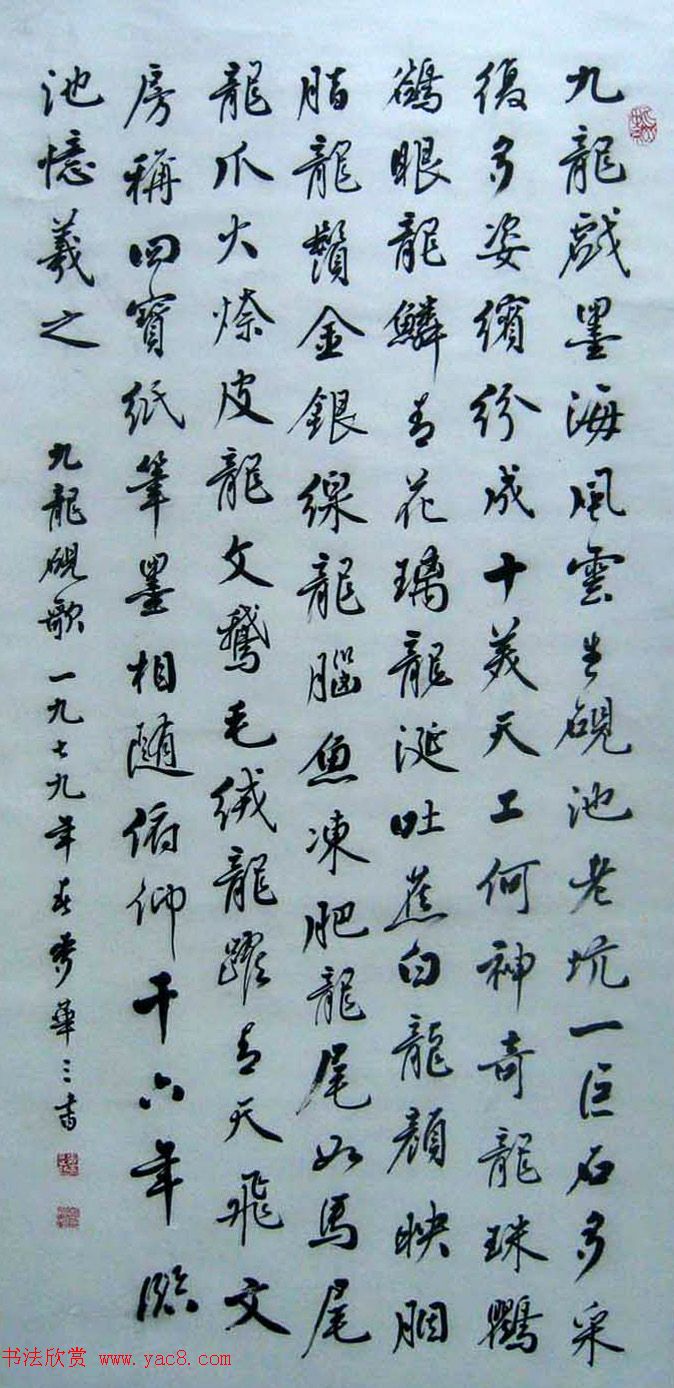 九龍戲墨海風雲生硯池老坑一巨石多采
復多姿繽紛成十美天工何神奇龍珠鸜
鵒眼龍鱗青花璃龍涎吐蕉白龍顏映胭
脂龍鬚金銀線龍腦魚凍肥龍尾如馬尾
龍爪火捺皮龍文鵝毛絨龍躍青天飛文
房稱四寶紙筆墨相随俯仰千六年臨
池憶羲之
九龍硯歌一九七九年春麥華三書
书法欣赏 www.yac8.com